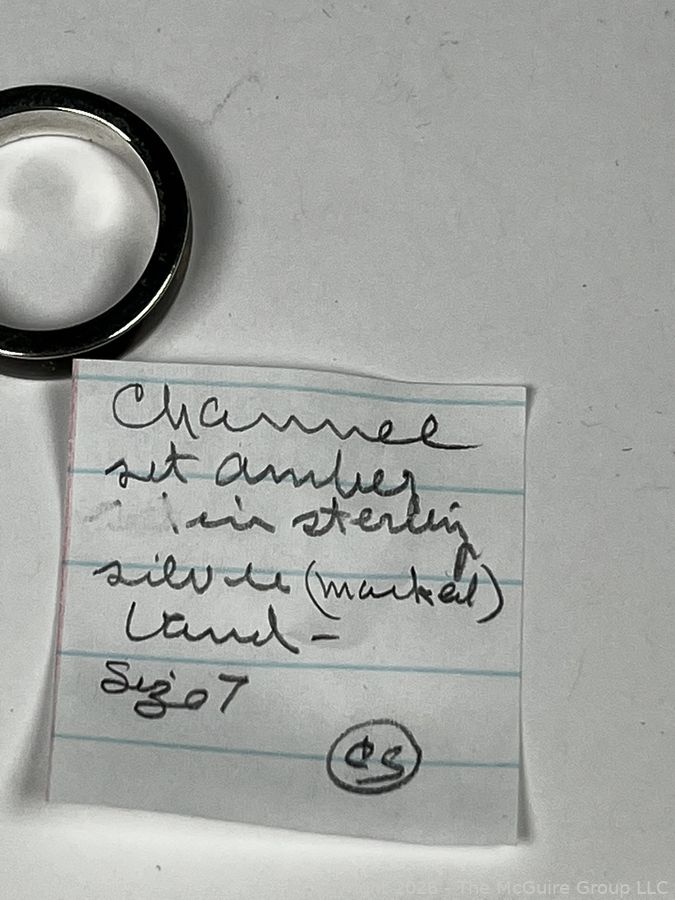 Channel
set amber
in sterling
silver (marked)
band -
Size 7
CS
2026 - The McGuire Group LLC